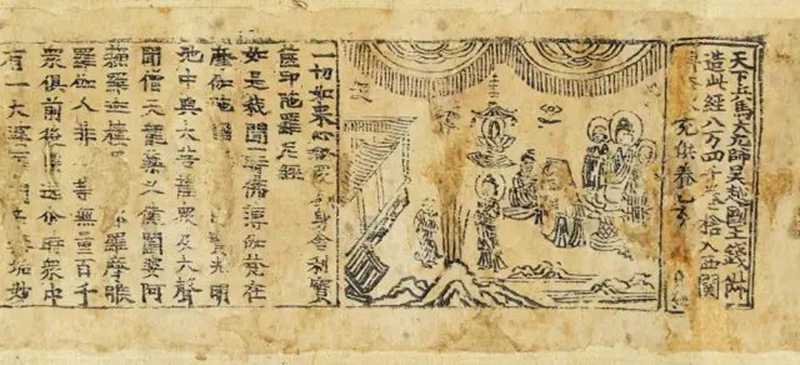 天下兵馬大元帥吳越國王錢俶
造此經八万四千卷捨入西關
永充供養乙亥 日紀
一切如來心 全身舍利寶
篋印陀羅尼經
如是我聞一時佛薄伽梵在
摩伽陀國 光明
池中與大菩薩衆及大聲
聞僧天龍藥叉犍闥婆阿
蘇羅迦樓 羅摩睺
羅伽人非 等無量百千
衆俱前後 遶尒時衆中
有一大婆 垢妙